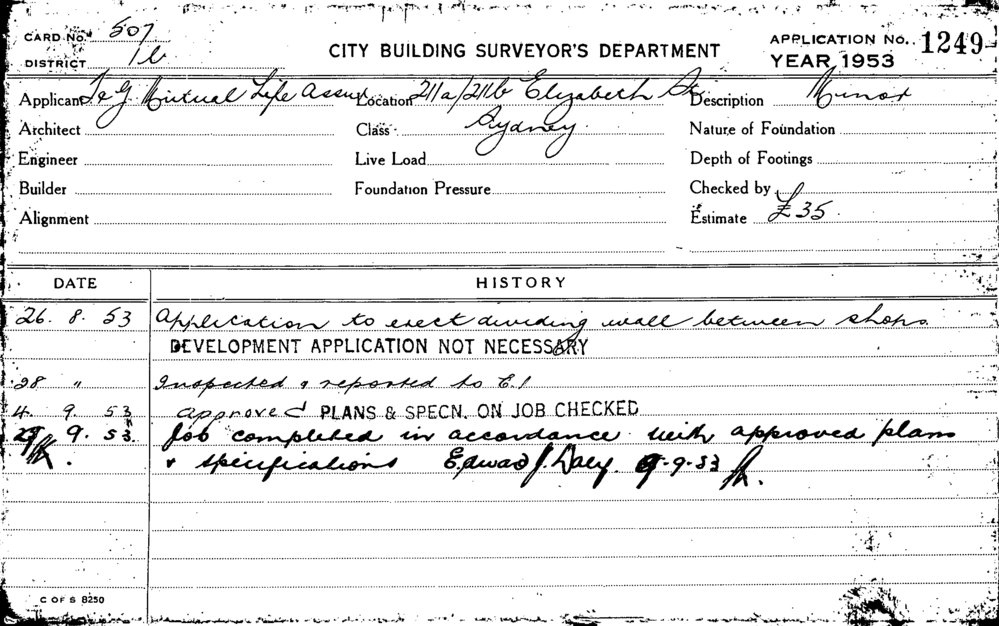 CARD No. 507
DISTRICT 1b
CITY BUILDING SURVEYOR'S DEPARTMENT
APPLICATION No. 1249
YEAR 1953
Applicant T & G Mutual Life Assur Location 211a/211b Elizabeth St Description Minor
Architect Class Sydney Nature of Foundation
Engineer Live Load Depth of Footings
Builder Foundation Pressure Checked by
Alignment Estimate £35
DATE HISTORY
26. 8. 53 Application to erect dividing wall between shops.
DEVELOPMENT APPLICATION NOT NECESSARY
28 " Inspected & reported to E.1
4. 9. 53 approved PLANS & SPECN. ON JOB CHECKED
9. 53. Job completed in accordance with approved plans
& specifications Edward J. Daly. 9-9-53
C OF S 8250